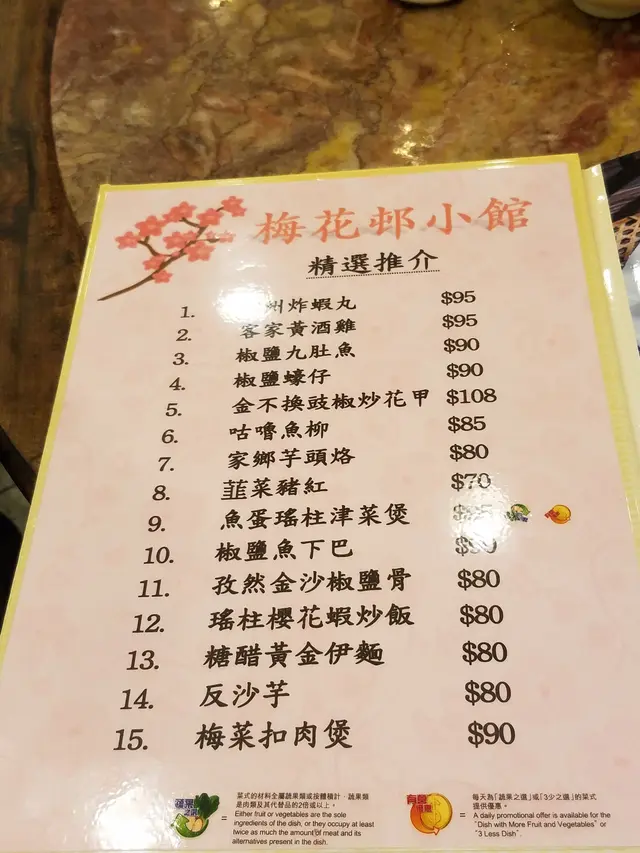 梅花邨小館
精選推介
1. 州炸蝦丸 $95
2. 客家黃酒雞 $95
3. 椒鹽九肚魚 $90
4. 椒鹽蠔仔 $90
5. 金不換豉椒炒花甲 $108
6. 咕嚕魚柳 $85
7. 家鄉芋頭烙 $80
8. 韮菜豬紅 $70
9. 魚蛋瑤柱津菜煲
10. 椒鹽魚下巴
11. 孜然金沙椒鹽骨 $80
12. 瑤柱櫻花蝦炒飯 $80
13. 糖醋黃金伊麵 $80
14. 反沙芋 $80
15. 梅菜扣肉煲 $90
蔬果之選
=
菜式的材料全屬蔬果類或按體積計，蔬果類
是肉類及其代替品的2倍或以上。
Either fruit or vegetables are the sole
ingredients of the dish, or they occupy at least
twice as much the amount of meat and its
alternatives present in the dish.
=
每天為「蔬果之選」或「3少之選」的菜式
提供優惠。
A daily promotional offer is available for the
"Dish with More Fruit and Vegetables" or
"3 Less Dish".